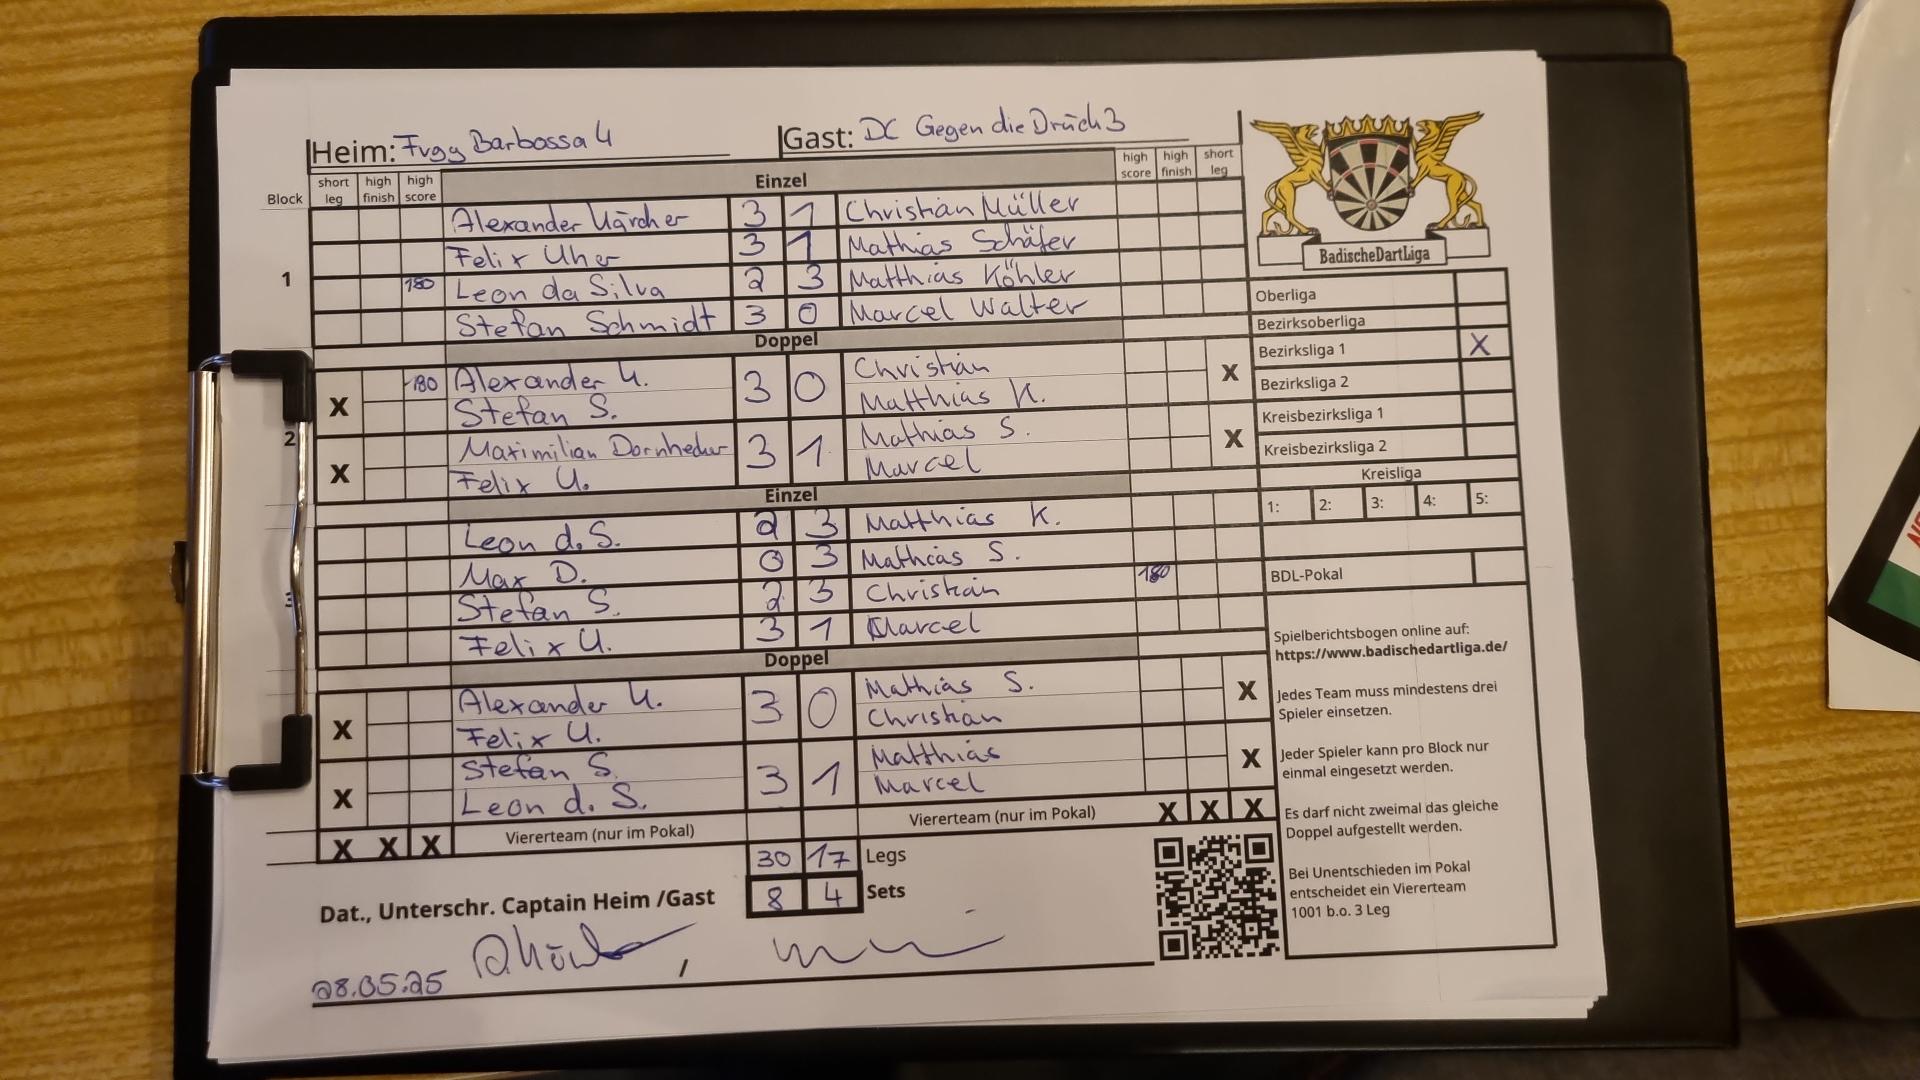 Heim: Fvgg Barbossa 4 Gast: DC Gegen die Drück 3
Block short leg high finish high score Einzel high score high finish short leg
1
Alexander Kärcher 3 1 Christian Müller
Felix Uher 3 1 Mathias Schäfer
180 Leon da Silva 2 3 Matthias Köhler
Stefan Schmidt 3 0 Marcel Walter
Doppel
2
X 180 Alexander K. 3 0 Christian X
Stefan S. Matthias K.
X Maximilian 3 1 Mathias S. X
Felix U. Marcel
Einzel
3
Leon d. S. 2 3 Matthias K.
Max D. 0 3 Mathias S.
Stefan S. 2 3 Christian 180
Felix U. 3 1 Marcel
Doppel
X Alexander K. 3 0 Mathias S. X
Felix U. Christian
X Stefan S. 3 1 Matthias X
Leon d. S. Marcel
X X X Viererteam (nur im Pokal) Viererteam (nur im Pokal) X X X
30 17 Legs
8 4 Sets
Dat., Unterschr. Captain Heim /Gast
28.05.25 /
BadischeDartLiga
Oberliga
Bezirksoberliga
Bezirksliga 1 X
Bezirksliga 2
Kreisbezirksliga 1
Kreisbezirksliga 2
Kreisliga
1: 2: 3: 4: 5:
BDL-Pokal
Spielberichtsbogen online auf:
https://www.badischedartliga.de/
Jedes Team muss mindestens drei
Spieler einsetzen.
Jeder Spieler kann pro Block nur
einmal eingesetzt werden.
Es darf nicht zweimal das gleiche
Doppel aufgestellt werden.
Bei Unentschieden im Pokal
entscheidet ein Viererteam
1001 b.o. 3 Leg